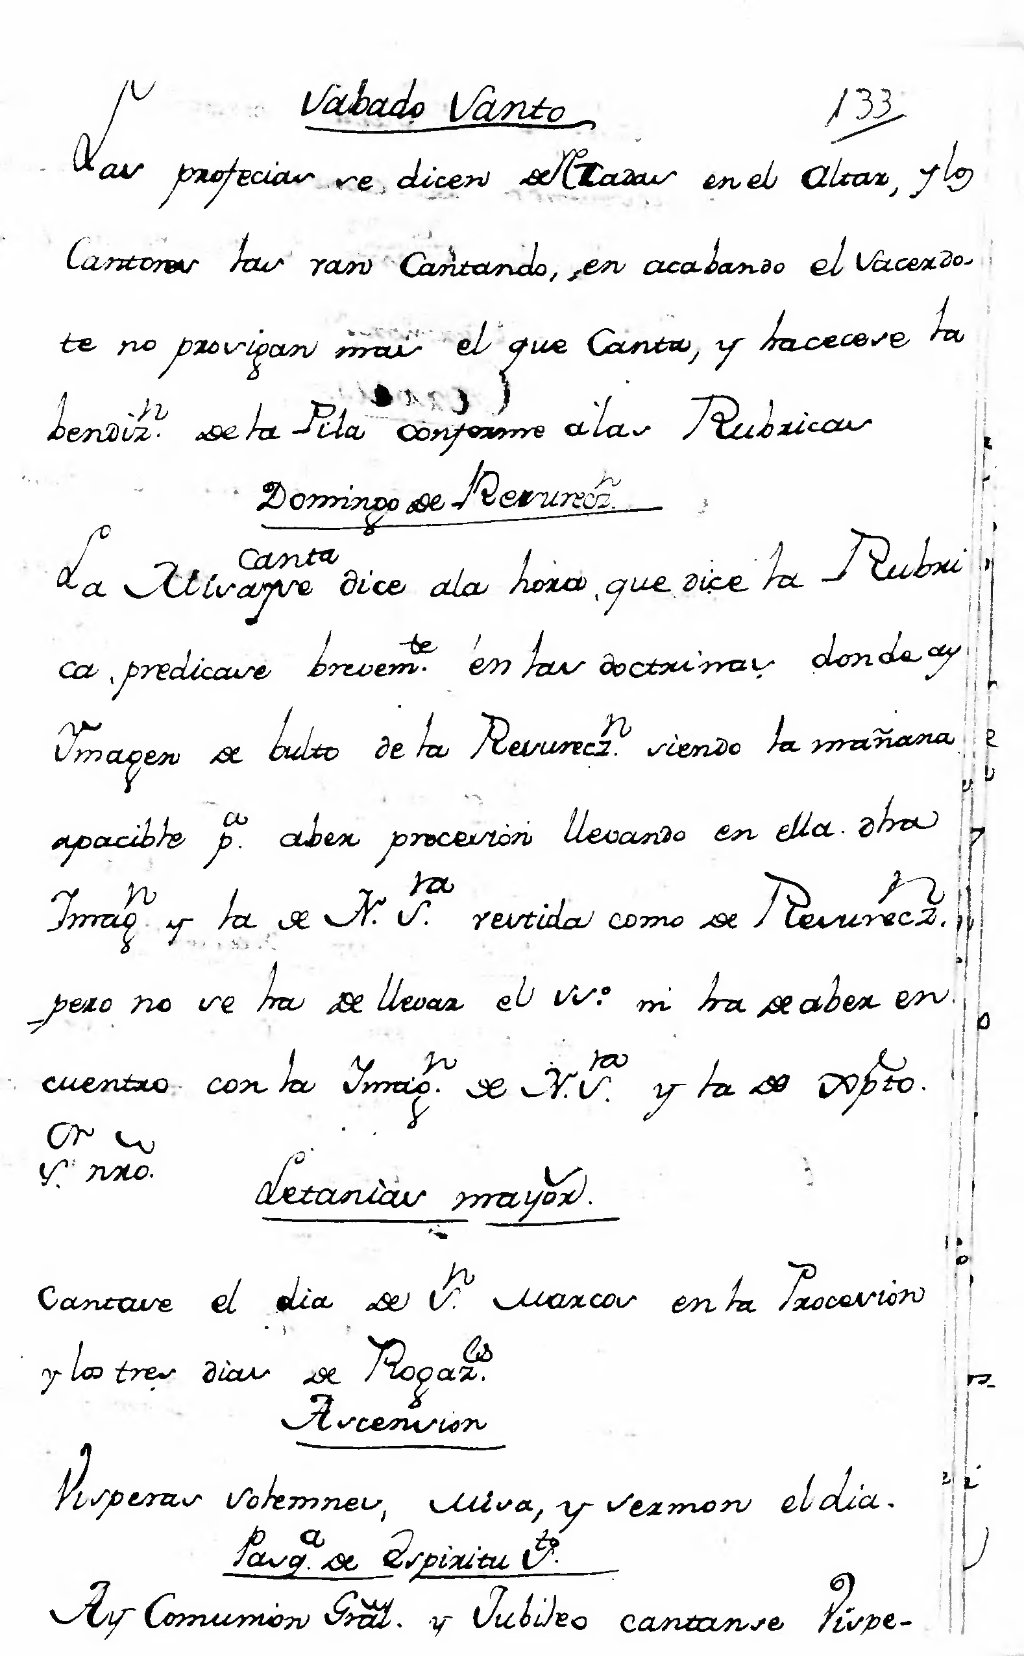 Sabado Santo 133
Las profecias se dicen rezadas en el Altar, y los
Cantores las van Cantando, en acabando el Sacerdo-
te no prosigan mas el que Canta, y hacecese la
bendiz.n de la Pila conforme a las Rubricas
Domingo de Resurecz.n
La Misa Canta se dice a la hora, que dice la Rubri
ca, predicase brevem.te en las doctrinas donde ay
Ymagen de bulto de la Resurecz.n siendo la mañana
apacible p.a aber procesion llevando en ella otra
Imag.n y la de N. S.ra vestida como de Resurecz.n
pero no se ha de llevar el SS.o ni ha de aber en
cuentro con la Imag.n de N. S.ra y la de Xpto.
S.or nro.
Letanias mayor.s
Cantase el dia de S.n Marcos en la Procesion
y los tres dias de Rogaz.es
Ascension
Visperas solemnes, Misa, y sermon el dia.
Pasq.a de Espiritu S.to
Ay Comunion Gral. y Jubileo cantanse Vispe-